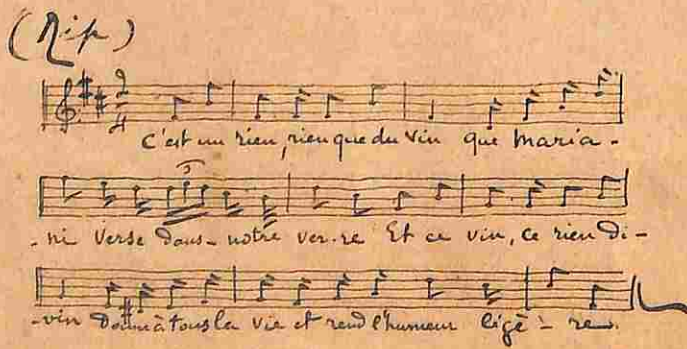 (Rip)
C'est un rien, rien que du vin que Maria-
-ni Verse dans notre ver-re Et ce vin, ce rien di-
-vin Donne à tous la vie et rend l'humeur légè-re.